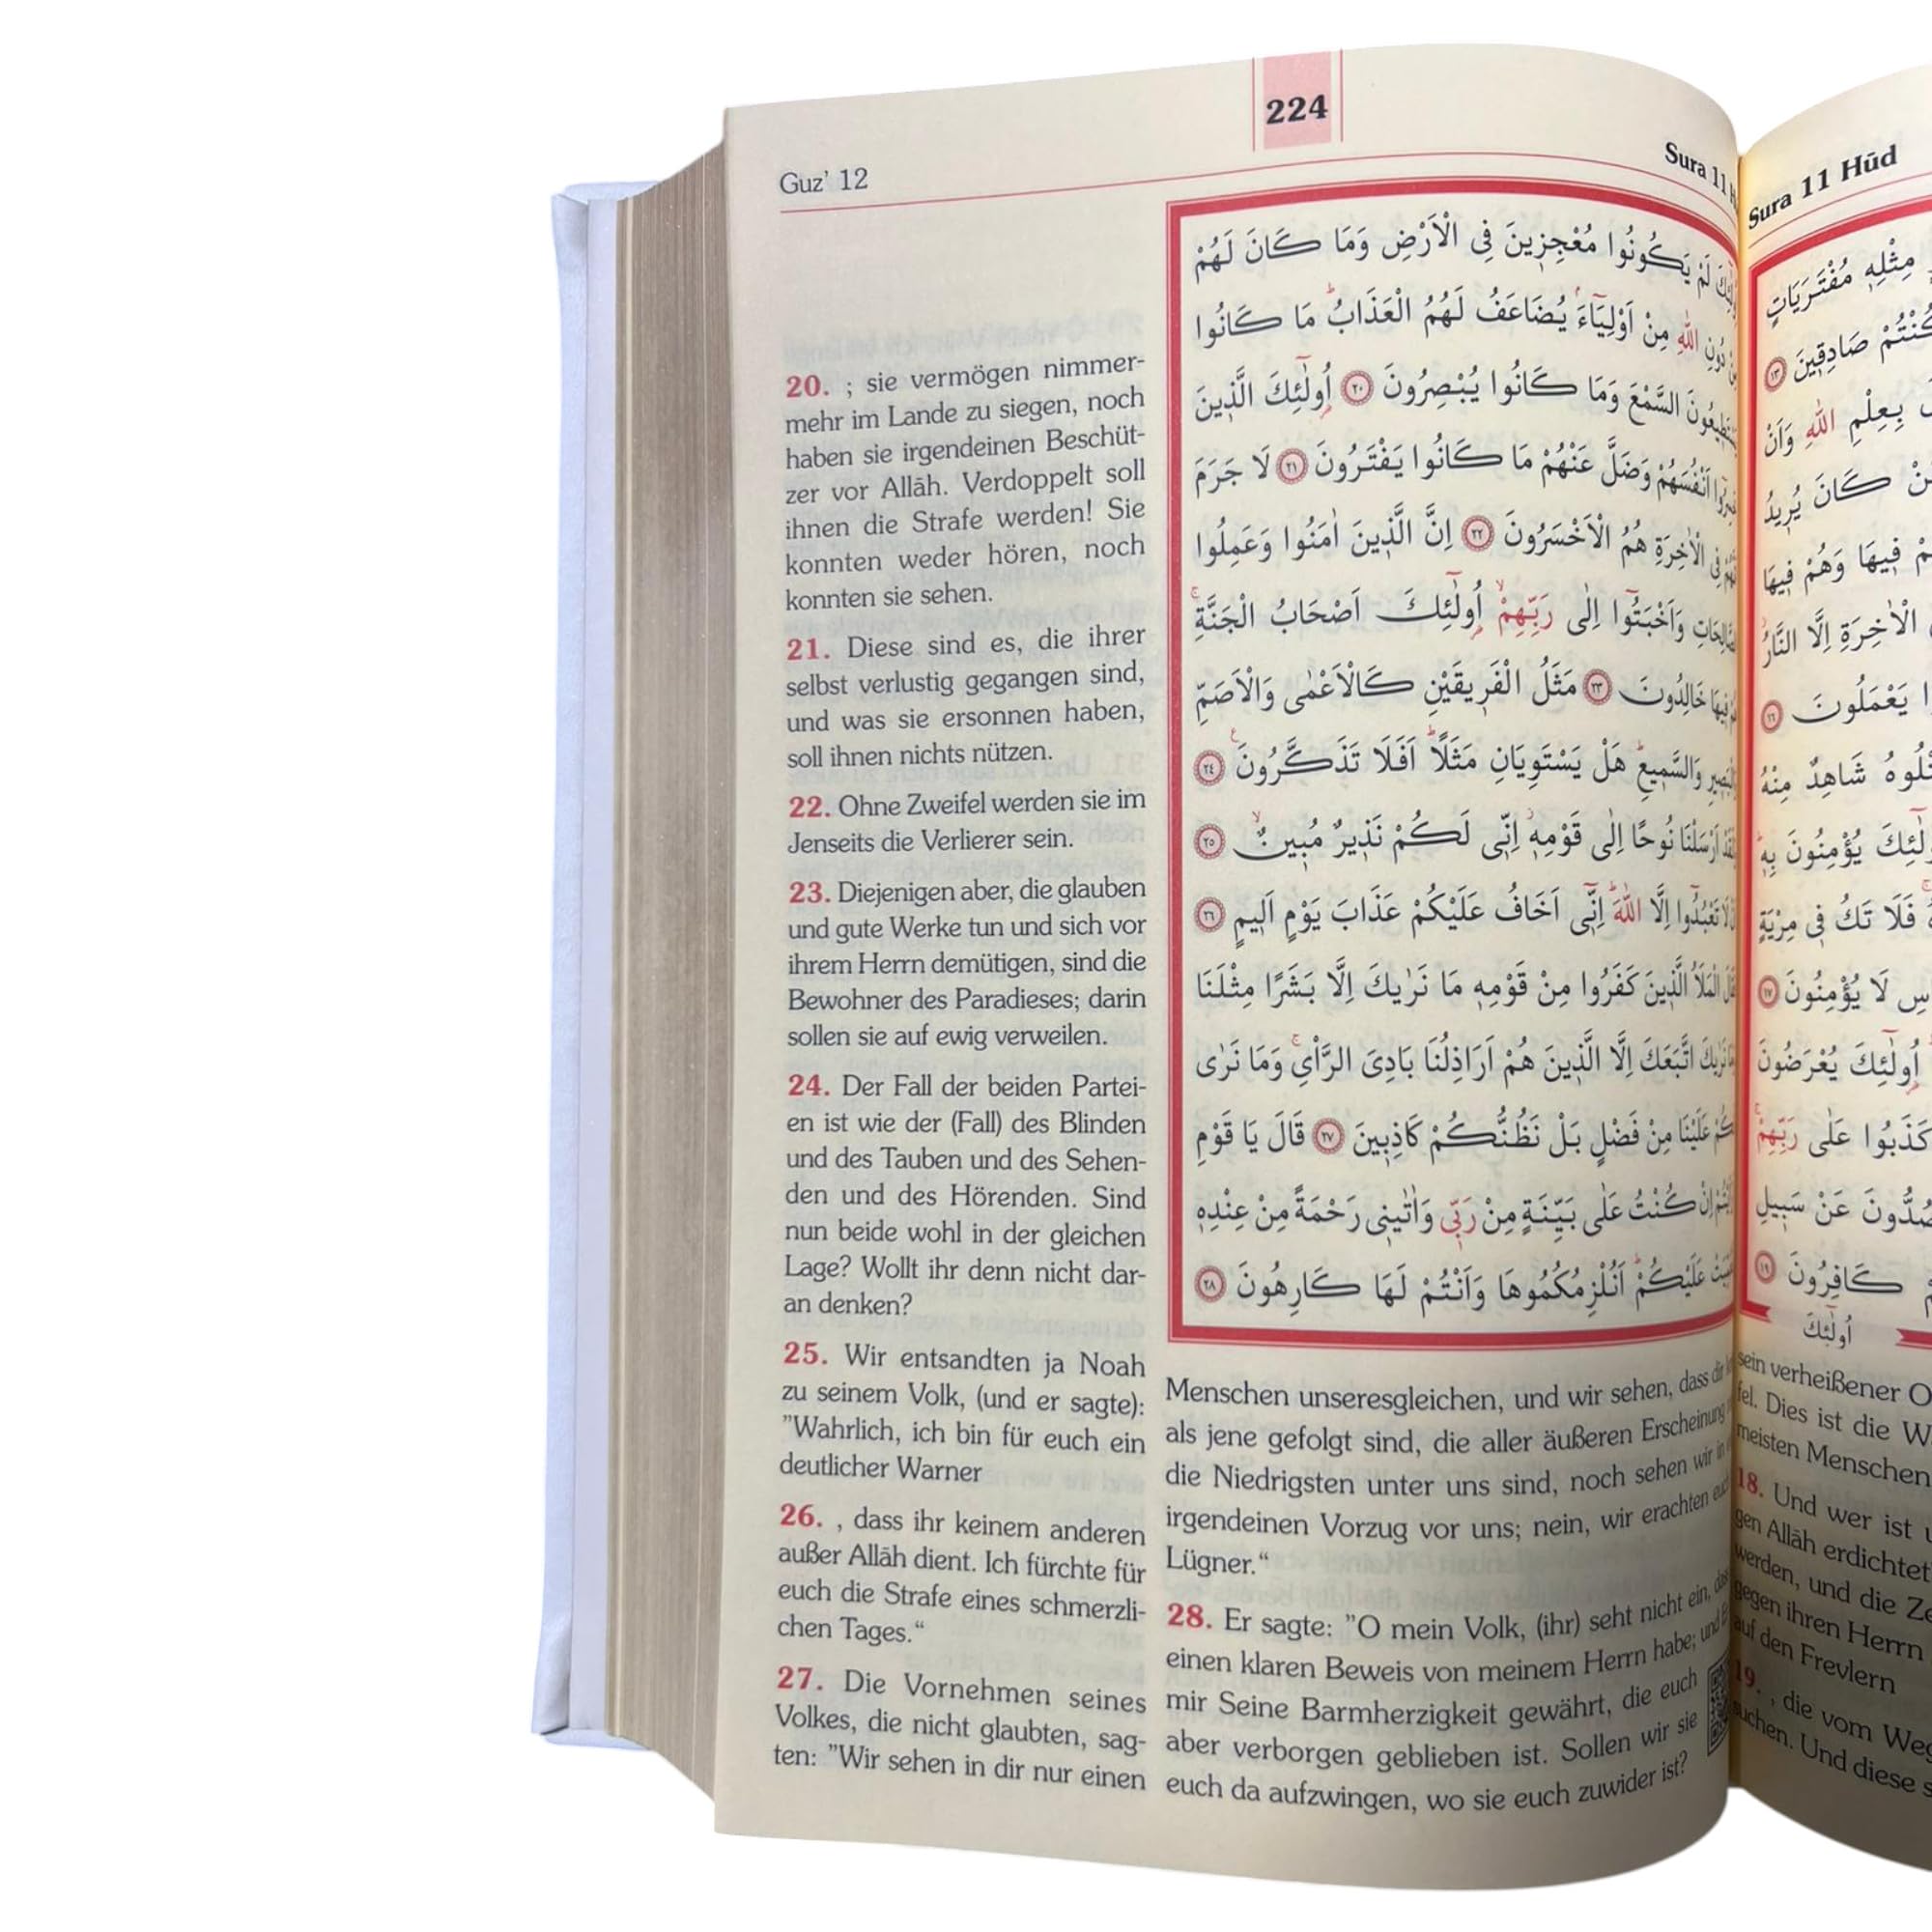 224
Guz’ 12
Sura 11
20. ; sie vermögen nimmer-
mehr im Lande zu siegen, noch
haben sie irgendeinen Beschüt-
zer vor Allāh. Verdoppelt soll
ihnen die Strafe werden! Sie
konnten weder hören, noch
konnten sie sehen.
21. Diese sind es, die ihrer
selbst verlustig gegangen sind,
und was sie ersonnen haben,
soll ihnen nichts nützen.
22. Ohne Zweifel werden sie im
Jenseits die Verlierer sein.
23. Diejenigen aber, die glauben
und gute Werke tun und sich vor
ihrem Herrn demütigen, sind die
Bewohner des Paradieses; darin
sollen sie auf ewig verweilen.
24. Der Fall der beiden Partei-
en ist wie der (Fall) des Blinden
und des Tauben und des Sehen-
den und des Hörenden. Sind
nun beide wohl in der gleichen
Lage? Wollt ihr denn nicht dar-
an denken?
25. Wir entsandten ja Noah
zu seinem Volk, (und er sagte):
”Wahrlich, ich bin für euch ein
deutlicher Warner
26. , dass ihr keinem anderen
außer Allāh dient. Ich fürchte für
euch die Strafe eines schmerzli-
chen Tages.“
27. Die Vornehmen seines
Volkes, die nicht glaubten, sag-
ten: ”Wir sehen in dir nur einen
لَمْ يَكُونُوا مُعْجِزِينَ فِي الْاَرْضِ وَمَا كَانَ لَهُمْ
دُونِ اللّٰهِ مِنْ اَوْلِيَٓاءَۘ يُضَاعَفُ لَهُمُ الْعَذَابُۜ مَا كَانُوا
السَّمْعَ وَمَا كَانُوا يُبْصِرُونَ ﴿٢٠﴾ اُو۬لٰٓئِكَ الَّذ۪ينَ
اَنْفُسَهُمْ وَضَلَّ عَنْهُمْ مَا كَانُوا يَفْتَرُونَ ﴿٢١﴾ لَا جَرَمَ
فِي الْاٰخِرَةِ هُمُ الْاَخْسَرُونَ ﴿٢٢﴾ اِنَّ الَّذ۪ينَ اٰمَنُوا وَعَمِلُوا
وَاَخْبَتُٓوا اِلٰى رَبِّهِمْۙ اُو۬لٰٓئِكَ اَصْحَابُ الْجَنَّةِۚ
ف۪يهَا خَالِدُونَ ﴿٢٣﴾ مَثَلُ الْفَر۪يقَيْنِ كَالْاَعْمٰى وَالْاَصَمِّ
وَالسَّم۪يعِۜ هَلْ يَسْتَوِيَانِ مَثَلًاۜ اَفَلَا تَذَكَّرُونَ۟ ﴿٢٤﴾
اَرْسَلْنَا نُوحًا اِلٰى قَوْمِه۪ۘ اِنّ۪ي لَكُمْ نَذ۪يرٌ مُب۪ينٌۙ ﴿٢٥﴾
تَعْبُدُٓوا اِلَّا اللّٰهَۜ اِنّ۪ٓي اَخَافُ عَلَيْكُمْ عَذَابَ يَوْمٍ اَل۪يمٍ ﴿٢٦﴾
الْمَلَاُ الَّذ۪ينَ كَفَرُوا مِنْ قَوْمِه۪ مَا نَرٰيكَ اِلَّا بَشَرًا مِثْلَنَا
اتَّبَعَكَ اِلَّا الَّذ۪ينَ هُمْ اَرَاذِلُنَا بَادِيَ الرَّأْيِۚ وَمَا نَرٰى
عَلَيْنَا مِنْ فَضْلٍ بَلْ نَظُنُّكُمْ كَاذِب۪ينَ ﴿٢٧﴾ قَالَ يَا قَوْمِ
اِنْ كُنْتُ عَلٰى بَيِّنَةٍ مِنْ رَبّ۪ي وَاٰتٰين۪ي رَحْمَةً مِنْ عِنْدِه۪
عَلَيْكُمْۜ اَنُلْزِمُكُمُوهَا وَاَنْتُمْ لَهَا كَارِهُونَ ﴿٢٨﴾
Menschen unseresgleichen, und wir sehen, dass dir
als jene gefolgt sind, die aller äußeren Erscheinung
die Niedrigsten unter uns sind, noch sehen wir in
irgendeinen Vorzug vor uns; nein, wir erachten euch
Lügner.“
28. Er sagte: ”O mein Volk, (ihr) seht nicht ein,
einen klaren Beweis von meinem Herrn habe; und
mir Seine Barmherzigkeit gewährt, die euch
aber verborgen geblieben ist. Sollen wir sie
euch da aufzwingen, wo sie euch zuwider ist?
Sura 11 Hūd
مِثْلِه۪ مُفْتَرَيَاتٍ
صَادِق۪ينَ ﴿١٣﴾
بِعِلْمِ اللّٰهِ وَاَنْ
كَانَ يُر۪يدُ
ف۪يهَا وَهُمْ ف۪يهَا
الْاٰخِرَةِ اِلَّا النَّارُ
يَعْمَلُونَ ﴿١٦﴾
شَاهِدٌ مِنْهُ
يُؤْمِنُونَ بِه۪ۜ
فَلَا تَكُ ف۪ي مِرْيَةٍ
لَا يُؤْمِنُونَ ﴿١٧﴾
اُو۬لٰٓئِكَ يُعْرَضُونَ
كَذَبُوا عَلٰى رَبِّهِمْۚ
عَنْ سَب۪يلِ
كَافِرُونَ ﴿١٩﴾
اُو۬لٰٓئِكَ
sein verheißener
fel. Dies ist die
meisten Menschen
18. Und wer ist
gen Allāh erdichtet
werden, und die
gegen ihren Herrn
auf den Frevlern
19. , die vom
suchen. Und diese